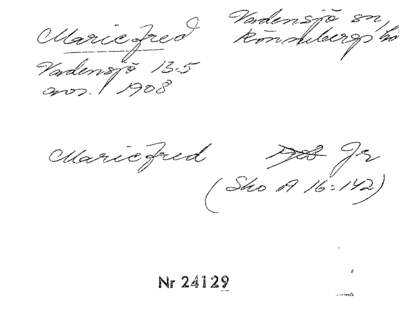 Mariefred
Vardensjö sn,
Könnebergs hd
Vardensjö 13.5
avs. 1908
Mariefred 1908 Jr
(Sko A 16:142)
Nr 24129